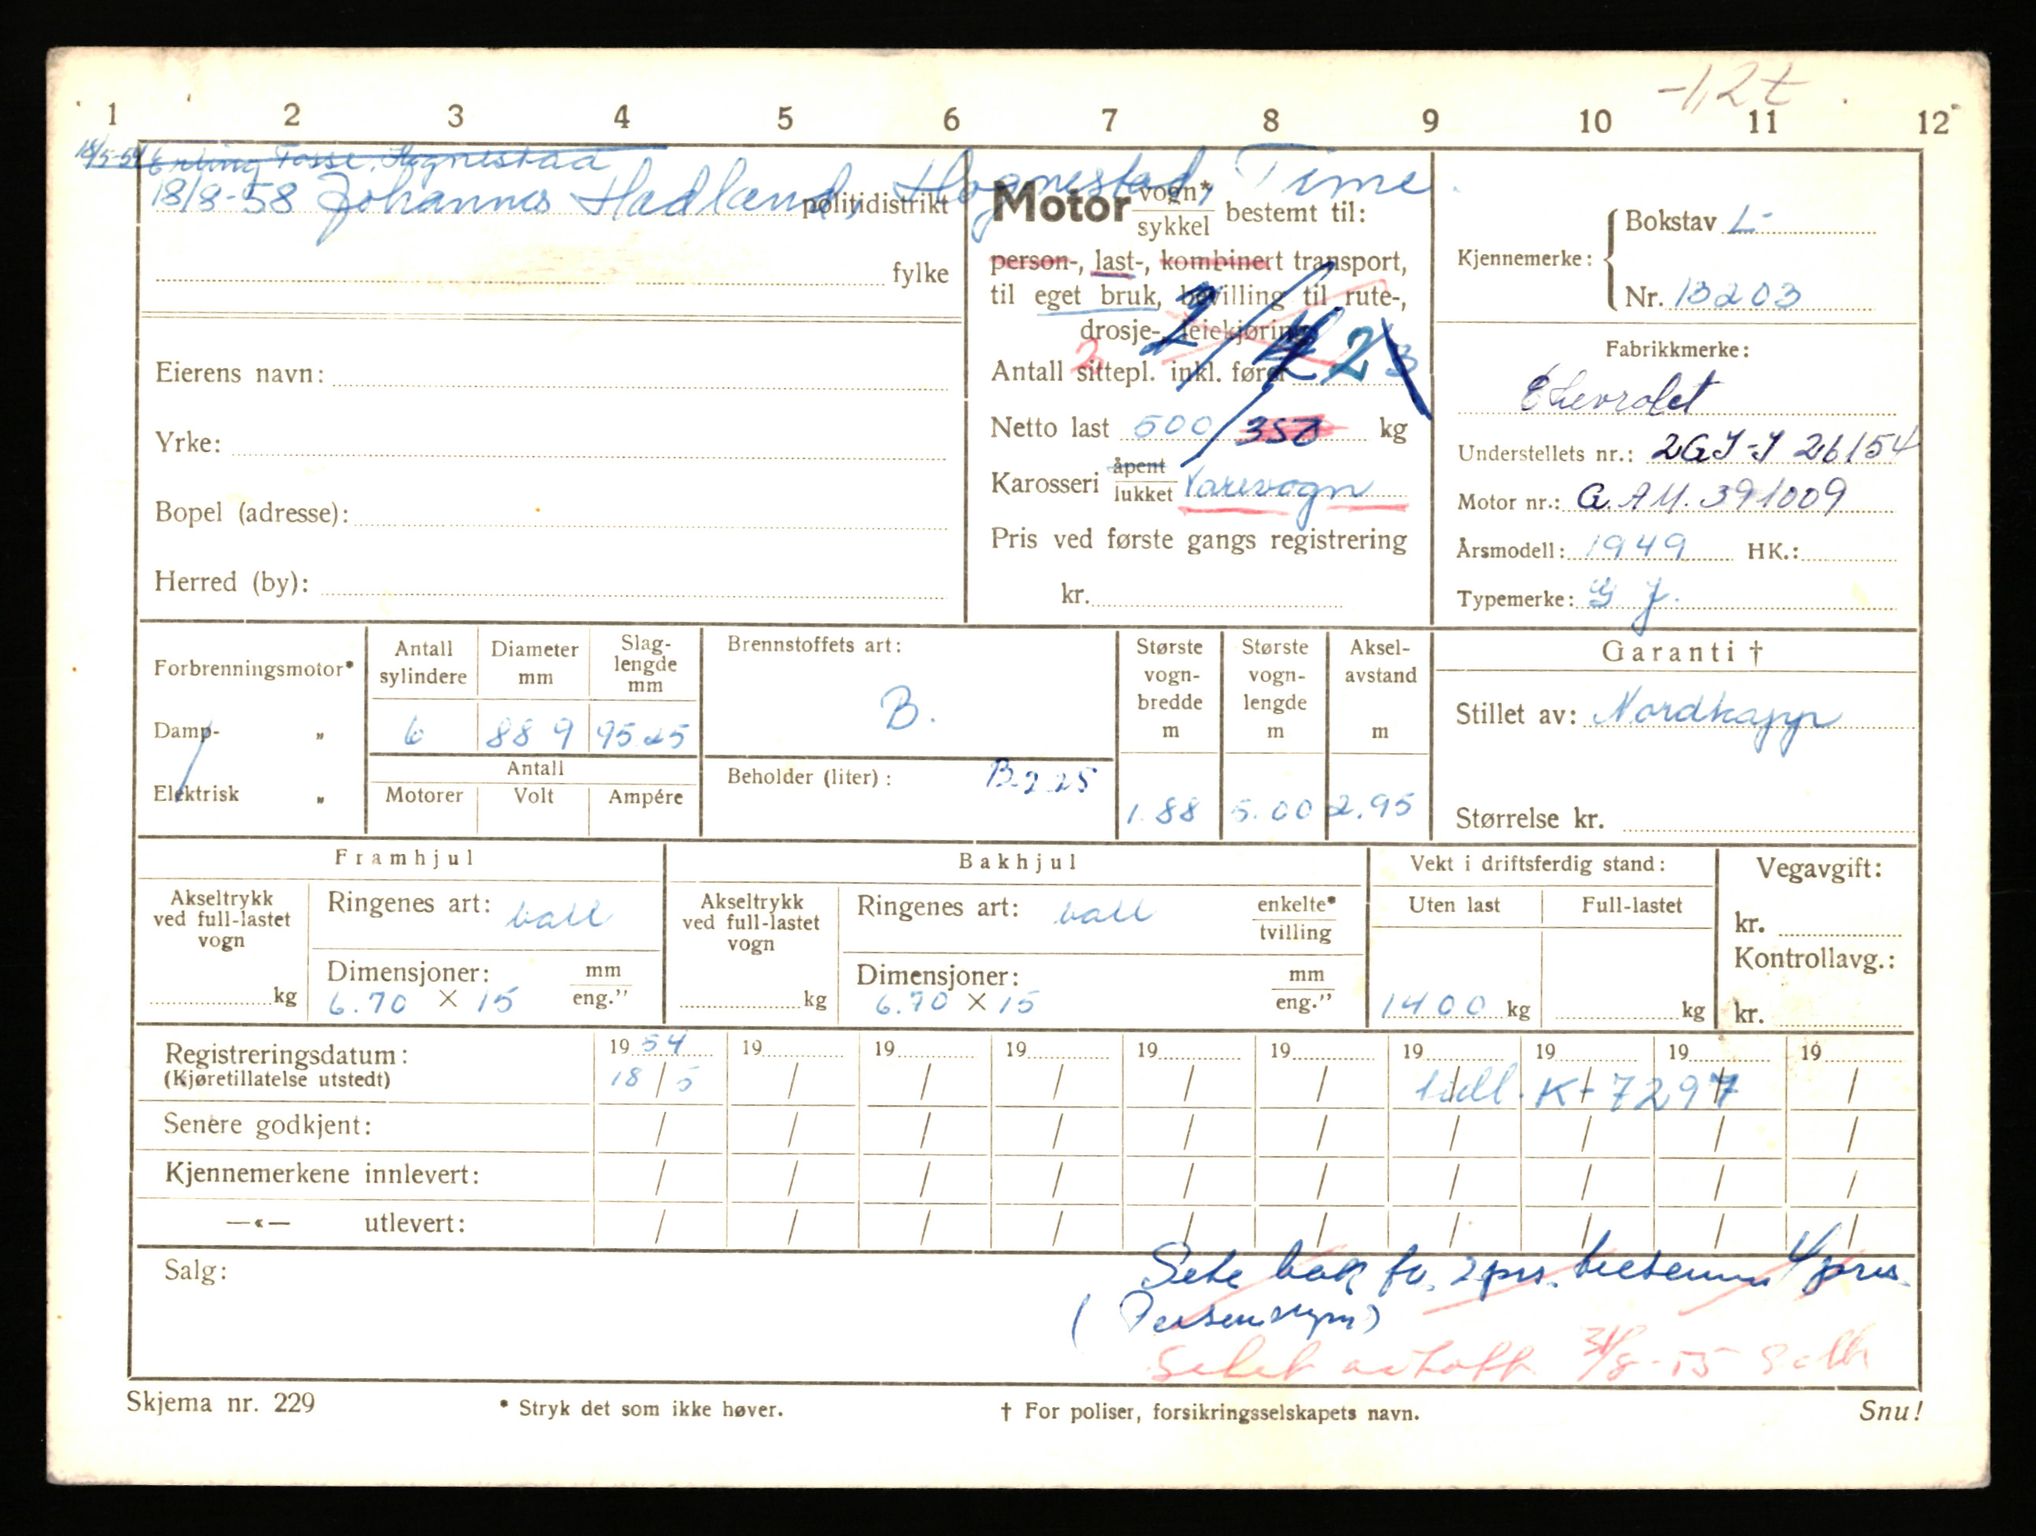 -1,2t
1 2 3 4 5 6 7 8 9 10 11 12
18/5-54 Erling Fosse, Hognestad
18/8-58 Johannes Hadland, Hognestad, Time.
politidistrikt
fylke
Eierens navn:
Yrke:
Bopel (adresse):
Herred (by):
Motor vogn* sykkel bestemt til:
person-, last-, kombinert transport,
til eget bruk, bevilling til rute-,
drosje-, leiekjøring
Antall sittepl. inkl. fører 2 2 3
2
Netto last 500 350 kg
Karosseri åpent lukket Varevogn
Pris ved første gangs registrering
kr.
Kjennemerke: Bokstav L-
Nr. 13203
Fabrikkmerke:
Chevrolet
Understellets nr.: 2GJ-J 26154
Motor nr.: G.AM. 391009
Årsmodell: 1949 HK.:
Typemerke: G J.
Forbrenningsmotor*
Damp- „
Elektrisk „
Antall sylindere 6
Diameter mm 88 9
Slag-lengde mm 95.25
Antall
Motorer Volt Ampére
Brennstoffets art:
B.
Beholder (liter): B.225
Største vogn-bredde m 1.88
Største vogn-lengde m 5.00
Aksel-avstand m 2.95
Garanti †
Stillet av: Nordkapp
Størrelse kr.
Framhjul
Akseltrykk ved full-lastet vogn
kg
Ringenes art: ball
Dimensjoner: mm eng."
6.70 × 15
Bakhjul
Akseltrykk ved full-lastet vogn
kg
Ringenes art: ball enkelte* tvilling
Dimensjoner: mm eng."
6.70 × 15
Vekt i driftsferdig stand:
Uten last Full-lastet
1400 kg kg
Vegavgift:
kr.
Kontrollavg.:
kr.
Registreringsdatum: 19 54 19 19 19 19 19 19 19 19 19
(Kjøretillatelse utstedt) 18/5 / / / / / / / / /
tidl. K-7297
Senere godkjent: / / / / / / / / / /
Kjennemerkene innlevert: / / / / / / / / / /
—«— utlevert: / / / / / / / / / /
Salg:
Sete bak for 2 prs. 4 pers.
Setet 31/8-55
Skjema nr. 229 * Stryk det som ikke høver. † For poliser, forsikringsselskapets navn. Snu!